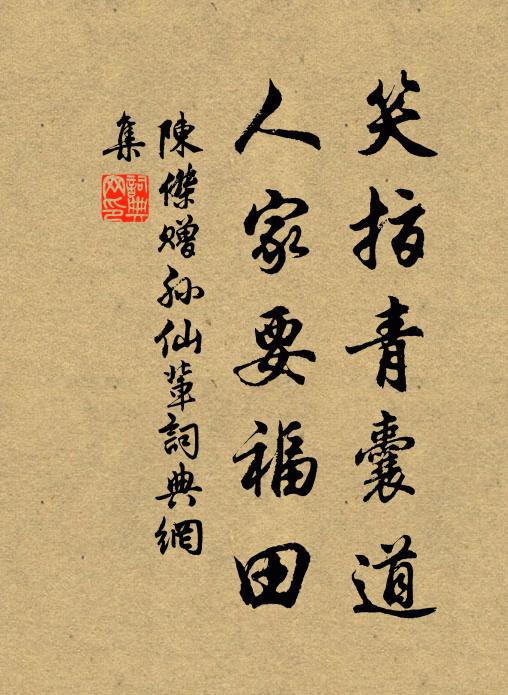 笑指青囊道
人家要福田
陳傑贈孙仙輩詞典網
集
詞典
网印